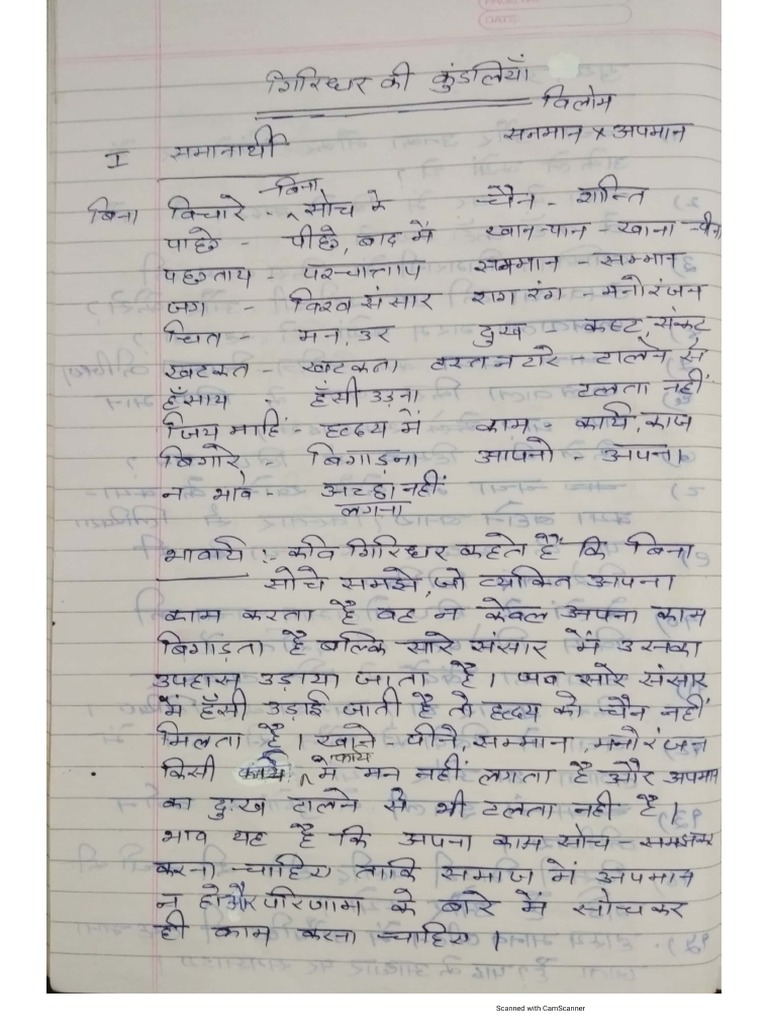 DATE
गिरिधर की कुंडलियाँ
विलोम
सनमान × अपमान
I समानार्थी
बिना विचारे - बिना सोच के चैन - शान्ति
पाछे - पीछे, बाद में खान-पान - खाना-पीना
पछताय - पश्चात्ताप सनमान - सम्मान
जग - विश्व संसार राग रंग - मनोरंजन
चित - मन, उर दुख कष्ट, संकट
खटकत - खटकना टरत न टारे - टालने से
हँसाय - हँसी उड़ना टलता नहीं
जिय माहिं - हृदय में काम - कार्य, काज
बिगारे - बिगाड़ना आपनो - अपना
न भावे - अच्छा नहीं
लगना
भावार्थ :- कवि गिरिधर कहते हैं कि बिना
सोचे समझे, जो व्यक्ति अपना
काम करता है वह न केवल अपना काम
बिगाड़ता है बल्कि सारे संसार में उसका
उपहास उड़ाया जाता है। जब सारे संसार
में हँसी उड़ाई जाती है तो हृदय को चैन नहीं
मिलता है। खाने-पीने, सम्मान, मनोरंजन
किसी कार्य में मन नहीं लगता है और अपमान
का दुःख टालने से भी टलता नही है।
भाव यह है कि अपना काम सोच-समझकर
करना चाहिए ताकि समाज में अपमान
न हो और परिणाम के बारे में सोचकर
ही काम करना चाहिए।
Scanned with CamScanner